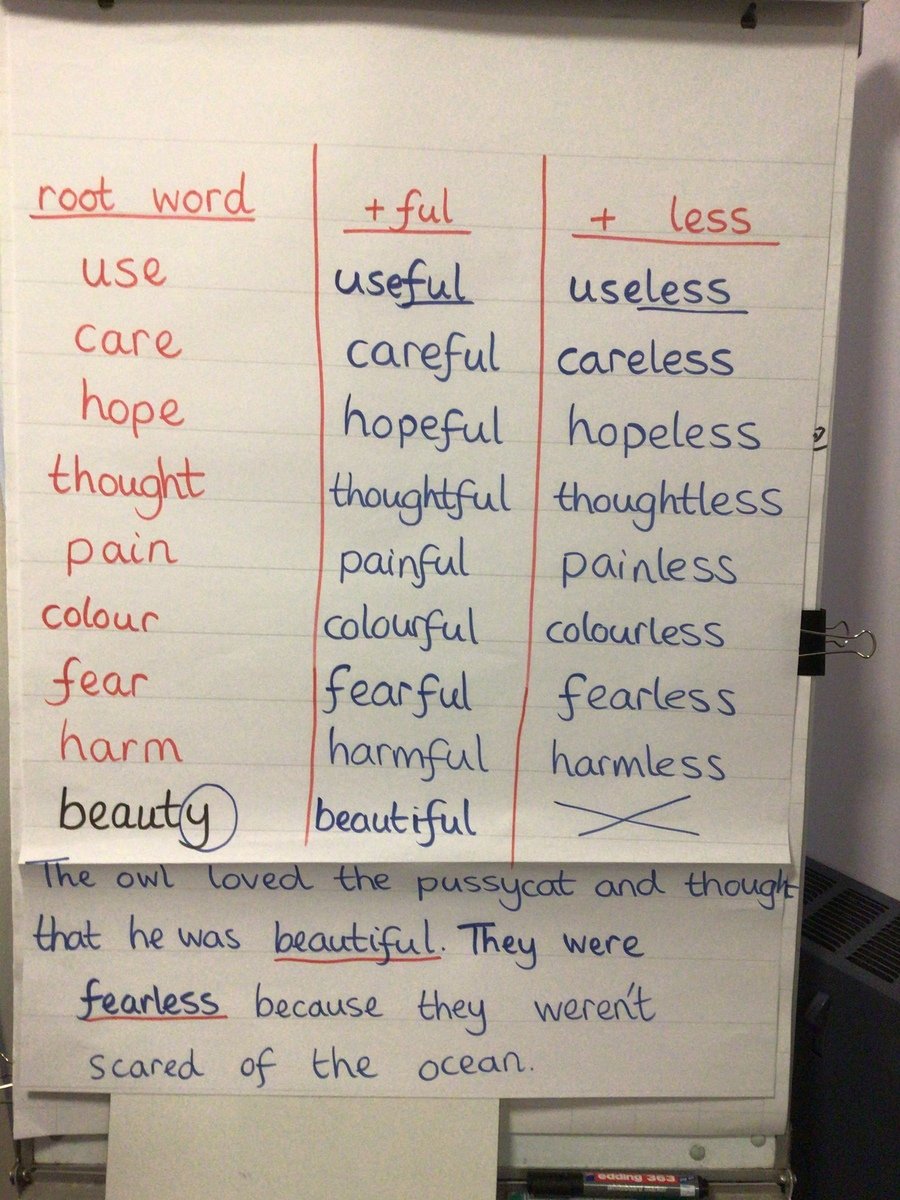 root word +ful + less
use useful useless
care careful careless
hope hopeful hopeless
thought thoughtful thoughtless
pain painful painless
colour colourful colourless
fear fearful fearless
harm harmful harmless
beauty beautiful
The owl loved the pussycat and thought
that he was beautiful. They were
fearless because they weren't
scared of the ocean.
edding 363